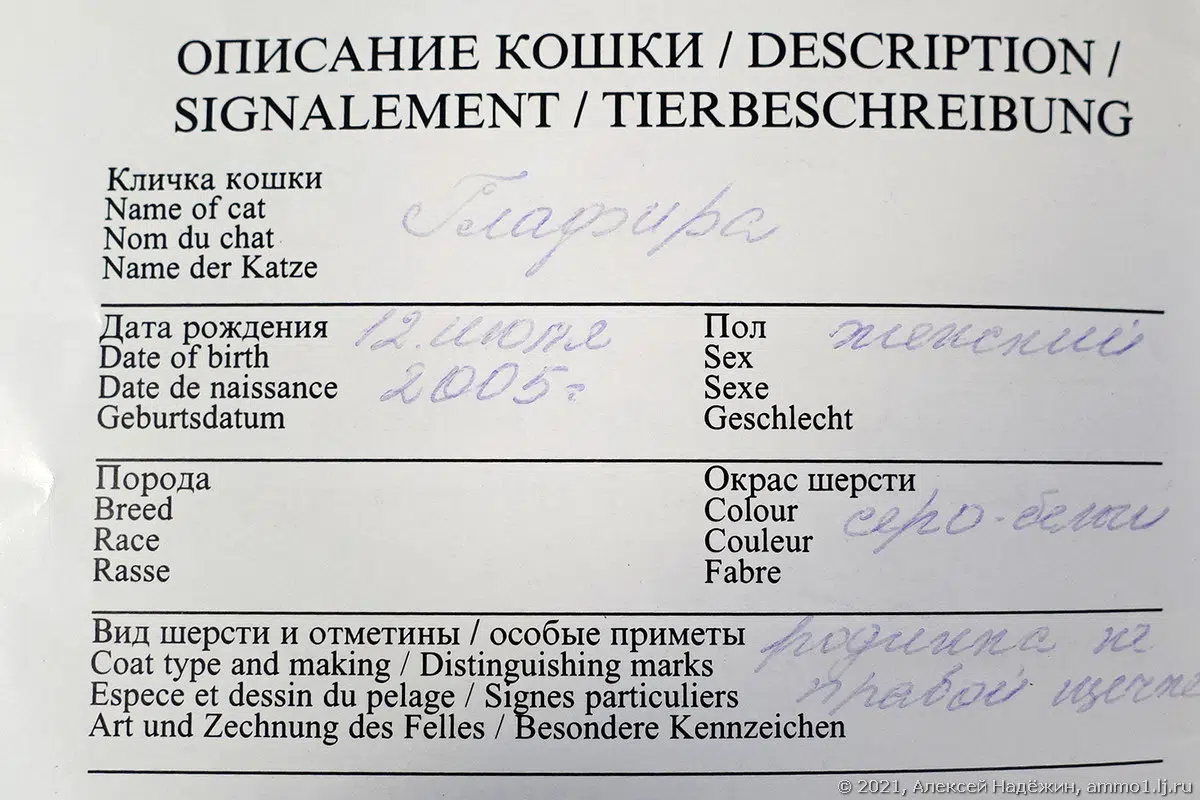 ОПИСАНИЕ КОШКИ / DESCRIPTION /
SIGNALEMENT / TIERBESCHREIBUNG
Кличка кошки
Name of cat
Nom du chat
Name der Katze
Глафира
Дата рождения
Date of birth
Date de naissance
Geburtsdatum
12 июня
2005 г
Пол
Sex
Sexe
Geschlecht
женский
Порода
Breed
Race
Rasse
Окрас шерсти
Colour
Couleur
Fabre
серо-белый
Вид шерсти и отметины / особые приметы
Coat type and making / Distinguishing marks
Espece et dessin du pelage / Signes particuliers
Art und Zechnung des Felles / Besondere Kennzeichen
родинка на
правой щечке
© 2021, Алексей Надёжин, ammo1.lj.ru